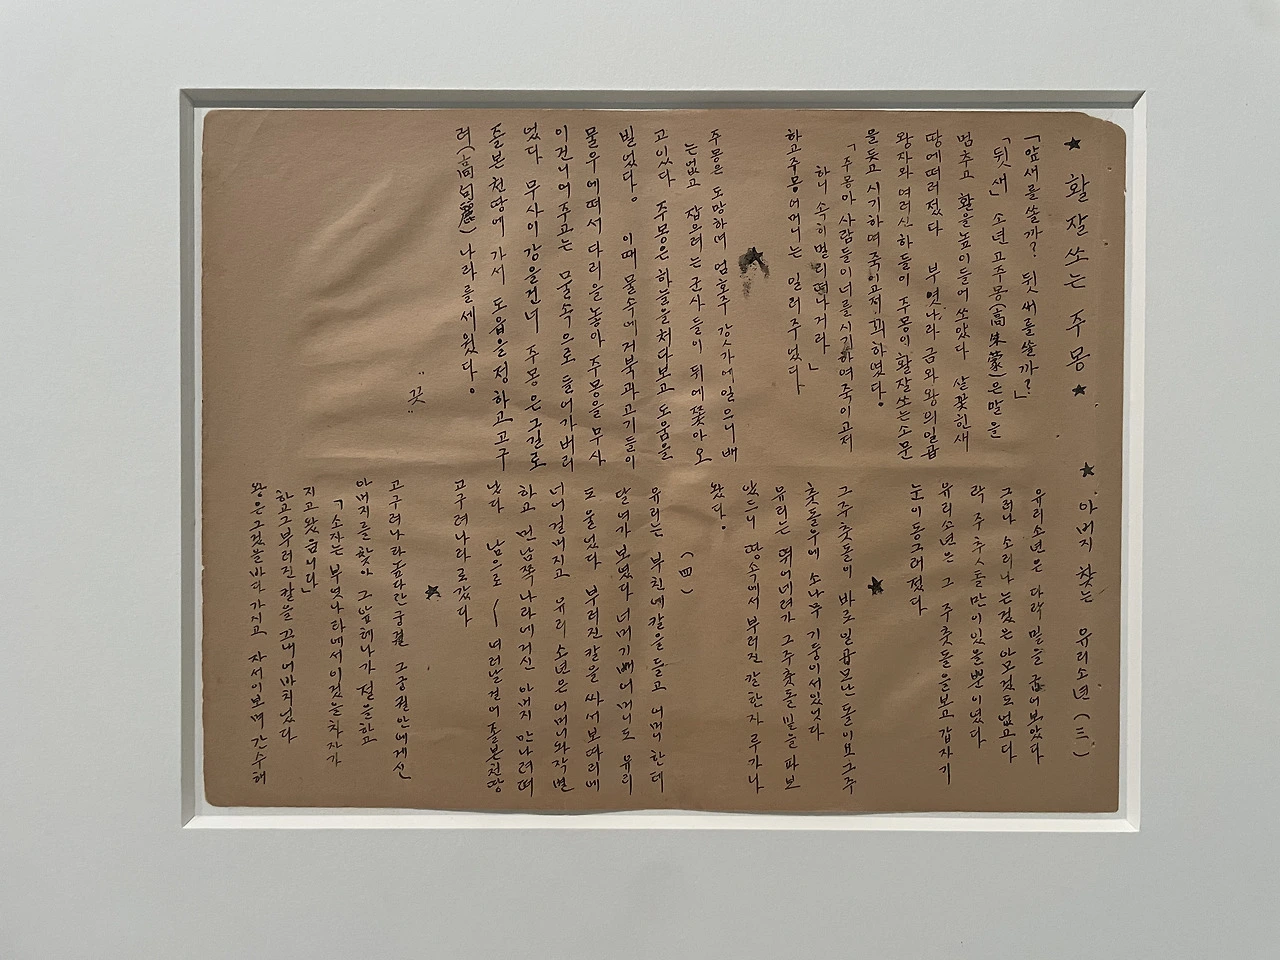 ★ 활 잘 쏘는 주몽 ★
「앞새를 쏠까? 뒷새를 쏠까?」
「뒷새」 소년 고주몽(高朱蒙)은 말을
멈추고 활을 높이 들어 쏘았다 살 꽂힌 새
땅에 떠러젔다 부엿나라 금와왕의 일곱
왕자와 여러 신하들이 주몽이 활 잘 쏘는 소문
을 듯고 시기하며 죽이고저 꾀하였다。
「주몽아 사람들이 너를 시기하여 죽이고저
하니 속히 멀리 떠나거라」
하고 주몽 어머니는 일러주었다
★
주몽은 도망하며 엄호주 강가에 일으니 배
는 없고 잡으려는 군사들이 뒤에 쫓아 오
고 있다 주몽은 하늘을 처다보고 도움을
빌었다。 이때 물속에 거북과 고기들이
물 우에 떠서 다리을 놓아 주몽을 무사
이 건너어 주고는 물속으로 들어가 버리
었다 무사이 강을 건너 주몽은 그길로
졸본천 땅에 가서 도읍을 정하고 고구
려(高句麗)나라를 세웠다。
〃끗〃
★ 아버지 찾는 유리소년 (三)
유리소년은 다락 밑을 굽어 보았다
그러나 소리나는 것은 아모것도 없고 다
락 주추돌만이 있을 뿐이였다
유리소년은 그 주춧돌을 보고 갑자기
눈이 동그래젔다
★
그 주춧돌이 바로 일곱 모난 돌이요 그 주
춧돌 우에 소나무 기둥이 서 있잇다
유리는 뛰어네려가 그 주춧돌 밑을 파보
았드니 땅속에서 부러진 칼 한 자루가 나
왔다。
(四)
유리는 부친에 칼을 들고 어머니 한테
달여가 보였다 너머 기뻐 어머니도 유리
도 울었다 부러진 칼을 싸서 보따리에
너어 걸머지고 유리 소년은 어머니와 작별
하고 먼 남쪽 나라에 게신 아버지 만나려 떠
났다 남으로 ー 여러 날 걸어 졸본천 땅
고구려나라로 갔다
★
고구려나라 높다란 궁궐 그 궁궐 안에 게신
아버지를 찾아 그 앞헤 나가 절을 하고
「소자는 부엿나라에서 이것을 차자가
지고 왔읍니다」
하고 그 부러진 칼을 끄내어 바치었다
왕은 그것을 바다 가지고 자서이 보며 간수해